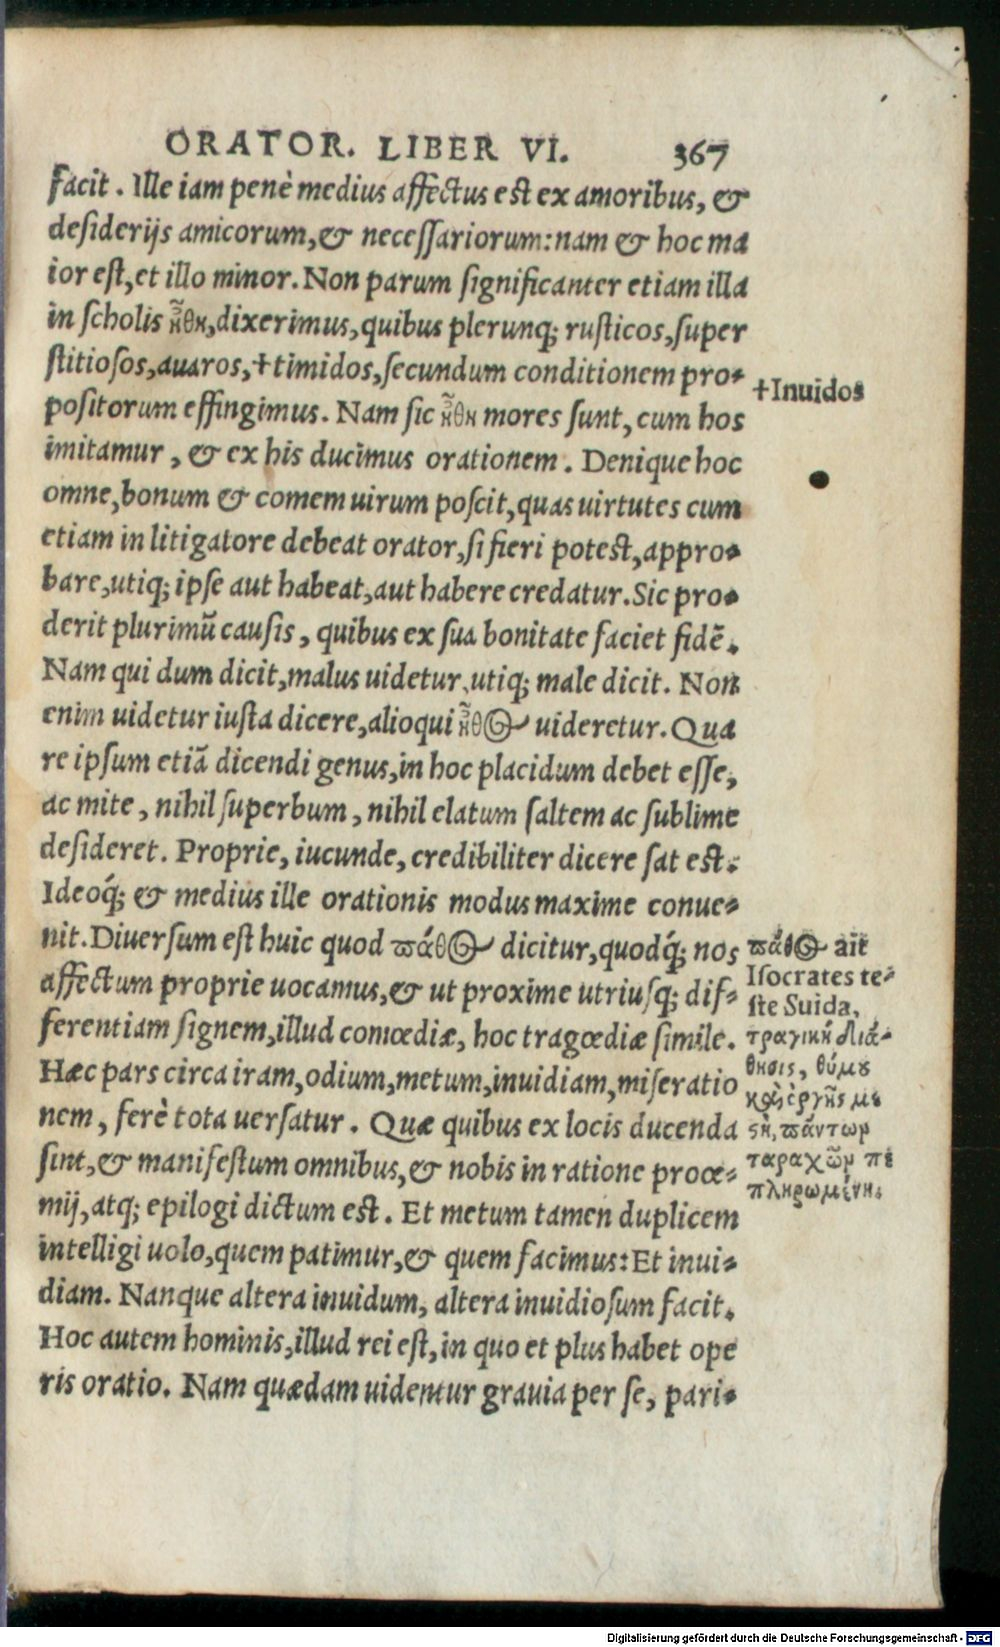 ORATOR. LIBER VI. 367
facit. Ille iam penè medius affectus est ex amoribus, &
desiderijs amicorum,& necessariorum:nam & hoc ma
ior est,et illo minor. Non parum significanter etiam illa
in scholis ἤθη,dixerimus,quibus plerunq; rusticos,super
stitiosos,auaros,+timidos,secundum conditionem pro-
positorum effingimus. Nam sic ἤθη mores sunt, cum hos
imitamur, & ex his ducimus orationem. Denique hoc
omne,bonum & comem uirum poscit,quas uirtutes cum
etiam in litigatore debeat orator,si fieri potest,appro-
bare,utiq; ipse aut habeat,aut habere credatur. Sic pro-
derit plurimũ causis, quibus ex sua bonitate faciet fidẽ.
Nam qui dum dicit,malus uidetur,utiq; male dicit. Non
enim uidetur iusta dicere,alioqui ἦθος uideretur. Qua
re ipsum etiã dicendi genus,in hoc placidum debet esse,
ac mite, nihil superbum, nihil elatum saltem ac sublime
desideret. Proprie, iucunde, credibiliter dicere sat est:
Ideoq́; & medius ille orationis modus maxime conue-
nit. Diuersum est huic quod πάθος dicitur,quodq́; nos
affectum proprie uocamus,& ut proxime utriusq; dif-
ferentiam signem,illud comœdiæ, hoc tragœdiæ simile.
Hæc pars circa iram,odium,metum,inuidiam,miseratio
nem, ferè tota uersatur. Quæ quibus ex locis ducenda
sint,& manifestum omnibus,& nobis in ratione proœ-
mij,atq; epilogi dictum est. Et metum tamen duplicem
intelligi uolo,quem patimur,& quem facimus: Et inui-
diam. Nanque altera inuidum, altera inuidiosum facit.
Hoc autem hominis,illud rei est,in quo et plus habet ope
ris oratio. Nam quædam uidentur grauia per se, pari-
+Inuidos
πάθος ait
Isocrates te-
ste Suida,
τραγικὴ διά-
θησις, θύμου
καὶ ὀργῆς με
ςὴ, πάντων
ταραχῶν πε
πληρωμένη.
Digitalisierung gefördert durch die Deutsche Forschungsgemeinschaft - DFG